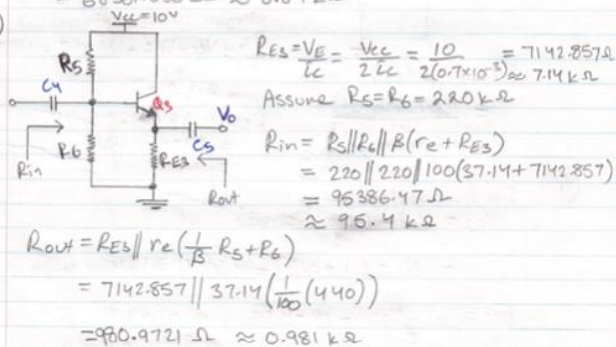 Vcc=10V
R5
C4
Q3
Vo
C5
R6
RE3
Rin
Rout
RE3 = VE/ic = Vcc/2ic = 10/2(0.7x10^-3) = 7142.857Ω ≈ 7.14 kΩ
Assume R5=R6=220kΩ
Rin = R5||R6||β(re+RE3)
= 220||220||100(37.14+7142.857)
= 95386.47Ω
≈ 95.4 kΩ
Rout = RE3||re(1/β R5+R6)
= 7142.857||37.14(1/100(440))
=980.9721 Ω ≈ 0.981 kΩ